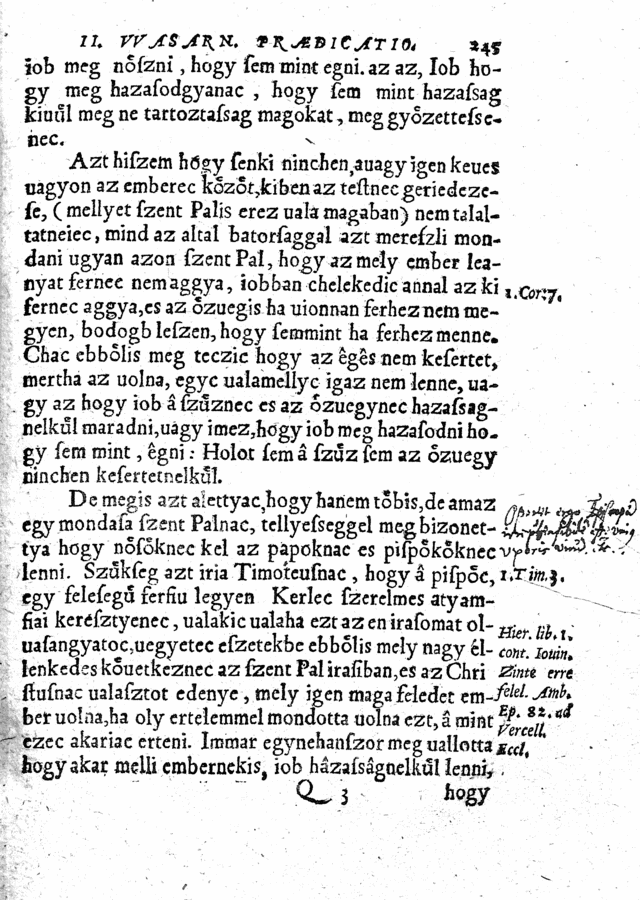 II. VVASARN. PRÆDICATIO. 245
iob meg nőſzni, hogy ſem mint egni. az az, Iob ho-
gy meg hazaſodgyanac, hogy ſem mint hazaſsag
kiuűl meg ne tartoztaſsag magokat, meg győzetteſse-
nec.
Azt hiſzem hogy ſenki ninchen, auagy igen keues
uagyon az emberec kőzőt, kiben az teſtnec geriedeze-
ſe, (mellyet ſzent Palis erez uala magaban) nem talal-
tatneiec, mind az altal batorſaggal azt mereſzli mon-
dani ugyan azon ſzent Pal, hogy az mely ember lea-
nyat fernec nem aggya, iobban chelekedic annal az ki
1. Cor: 7.
fernec aggya, es az őzuegis ha uionnan ferhez nem me-
gyen, bodogb leſzen, hogy ſemmint ha ferhez menne.
Chac ebbőlis meg teczic hogy az êgês nem keſertet,
mertha az uolna, egyc ualamellyc igaz nem lenne, ua-
gy az hogy iob â ſzűznec es az őzuegynec hazaſsag-
nelkűl maradni, uagy imez, hogy iob meg hazaſodni ho-
gy ſem mint, êgni: Holot ſem â ſzűz ſem az őzuegy
ninchen keſertetnelkűl.
De megis azt alettyac, hogy hanem tőbis, de amaz
egy mondaſa ſzent Palnac, tellyeſseggel meg bizonet-
tya hogy nőſőknec kel az papoknac es piſpőkőknec
lenni. Szűkſeg azt iria Timoteuſnac, hogy â piſpőc,
1. Tim. 3.
egy feleſegű ferfiu legyen Kerlec ſzerelmes atyam-
fiai kereſztyenec, ualakic ualaha ezt az en iraſomat ol-
uaſangyatoc, uegyetec eſzetekbe ebbőlis mely nagy êl-
lenkedes kőuetkeznec az ſzent Pal iraſiban, es az Chri
ſtuſnac ualaſztot edenye, mely igen maga feledet em-
ber uolna, ha oly ertelemmel mondotta uolna ezt, â mint
ezec akariac erteni. Immar egynehanſzor meg uallotta
hogy akar melli embernekis, iob hâzaſsâgnelkűl lenni,
Hier. lib. 1.
cont. Iouin.
Zinte erre
felel. Amb.
Ep. 82. ad
Vercell.
Eccl.
Q 3 hogy